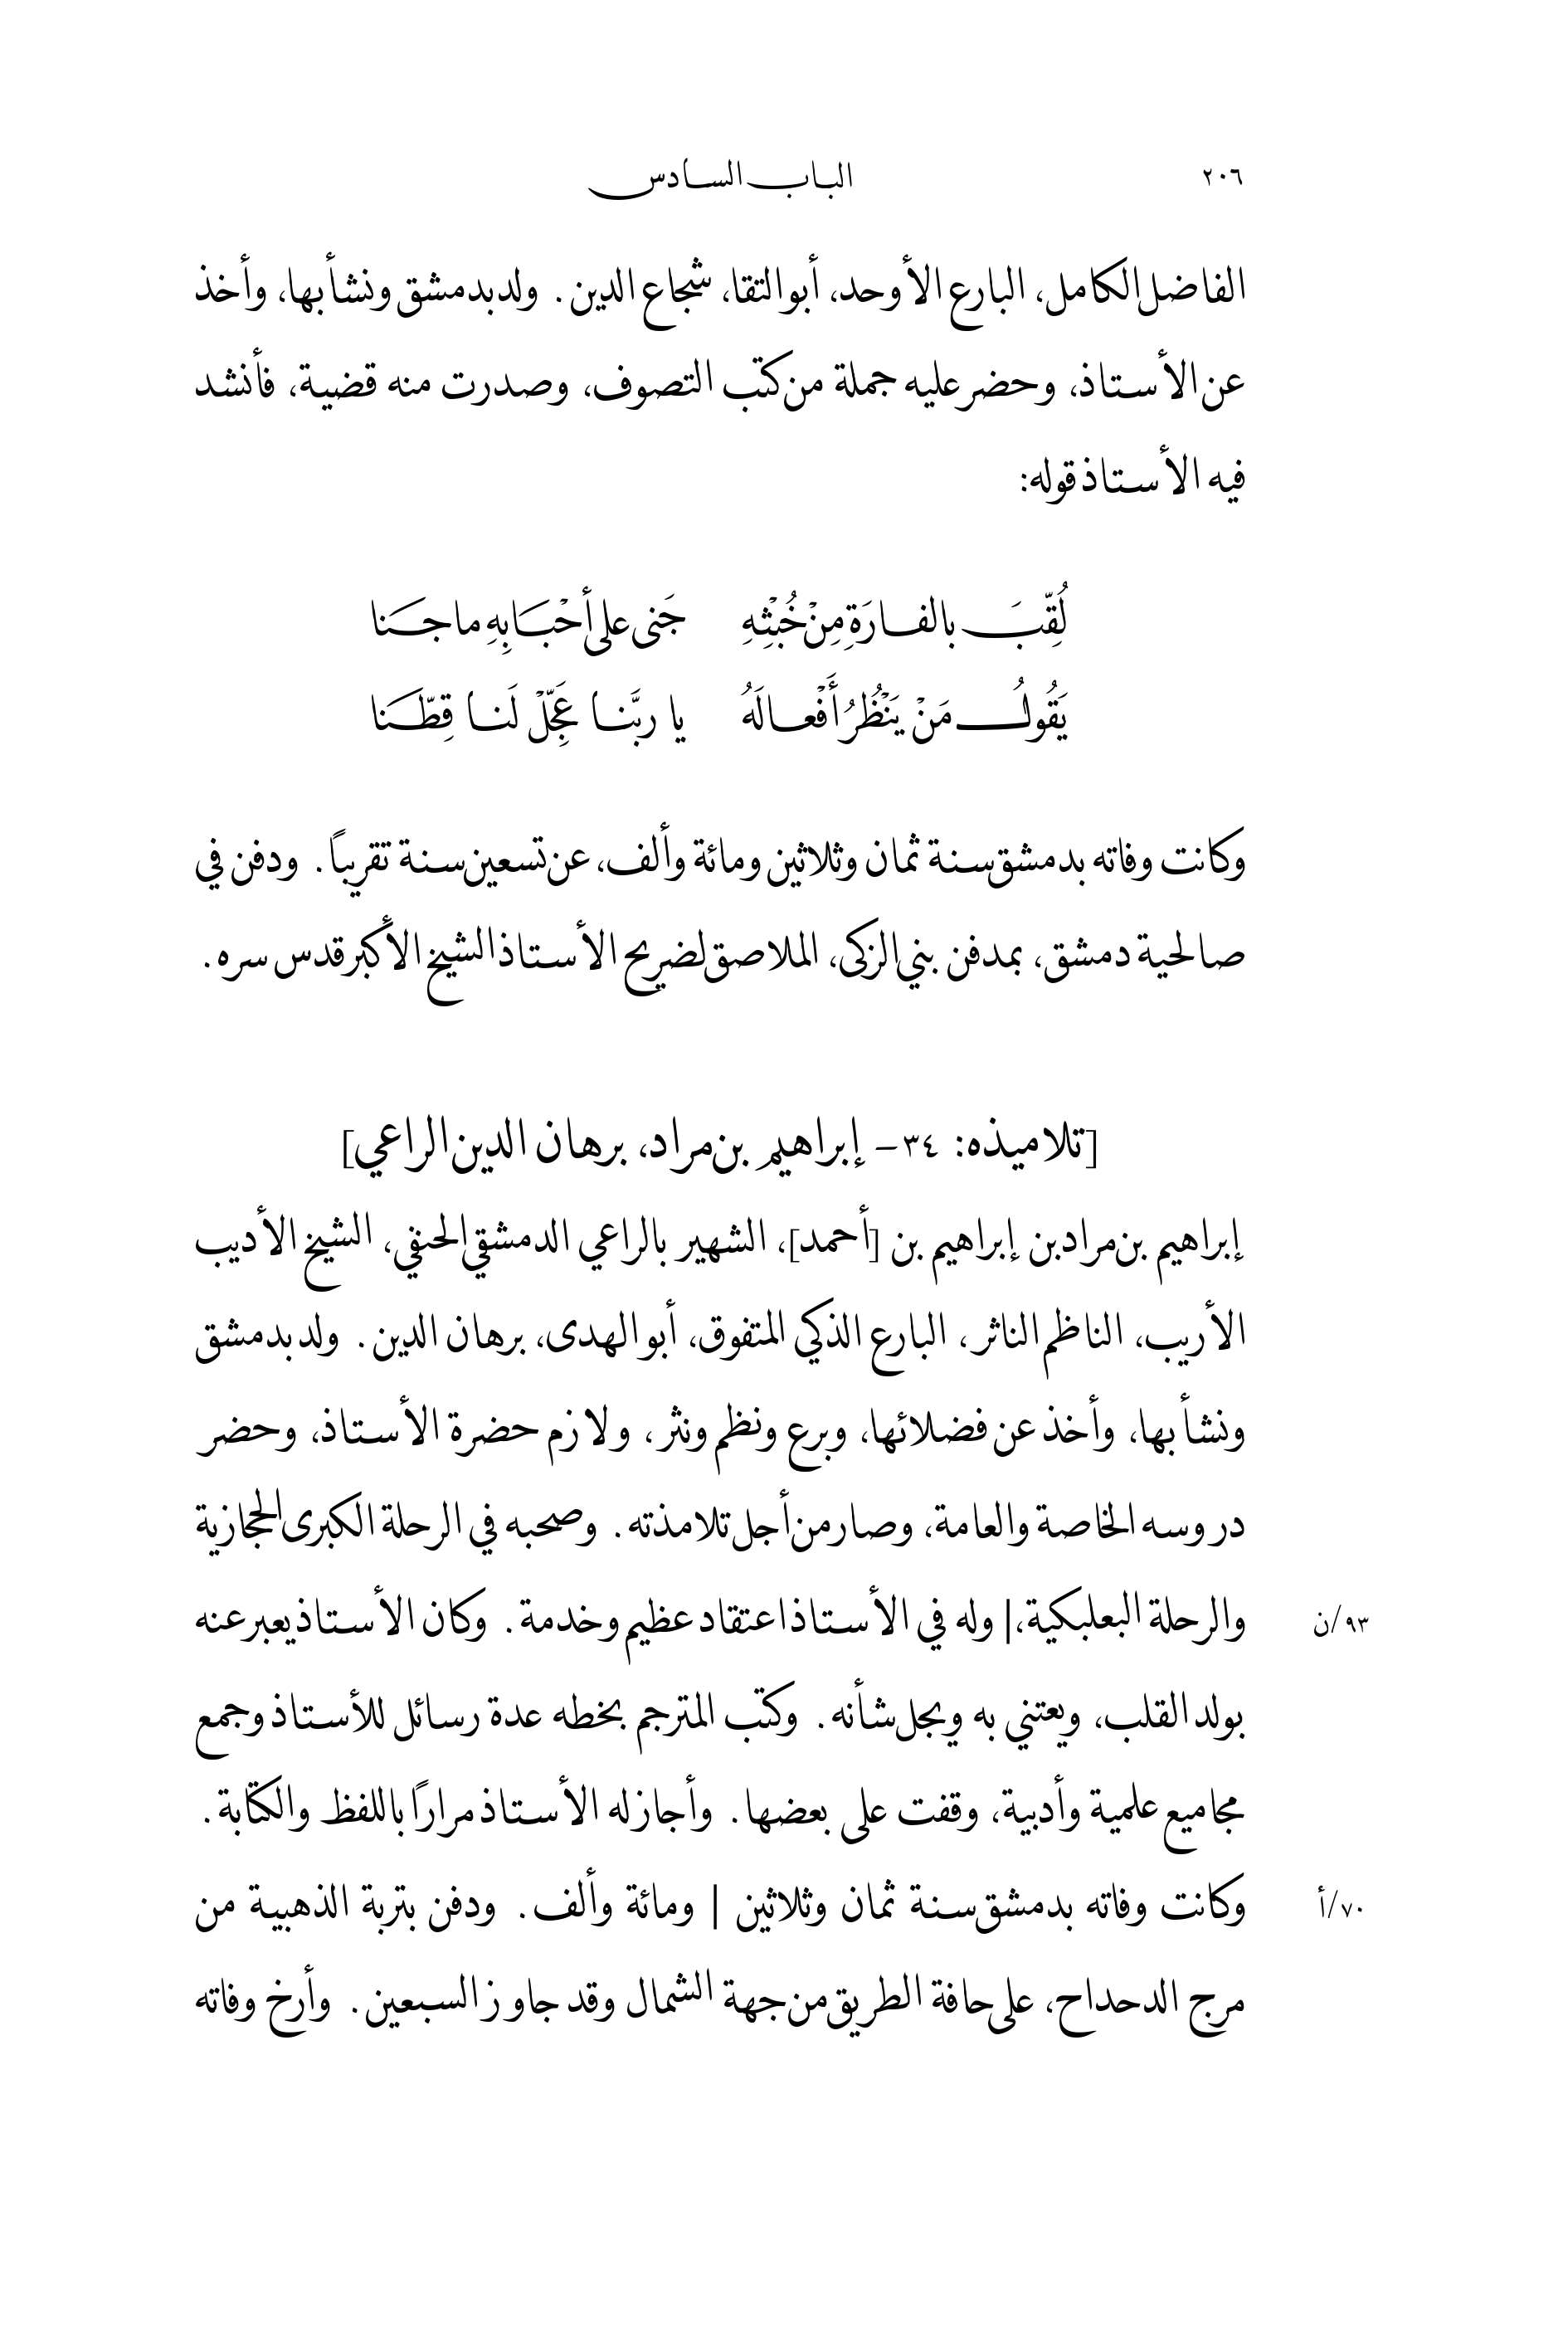 ٢٠٦ الباب السادس
الفاضل الكامل، البارع الأوحد، أبو التقا، شجاع الدين. ولد بدمشق ونشأ بها، وأخذ
عن الأستاذ، وحضر عليه جملة من كتب التصوف، وصدرت منه قضية، فأنشد
فيه الأستاذ قوله:
لُقِّبَ بالفارَةِ مِنْ خُبْثِهِ جَنى على أحْبَابِهِ ما جَنا
يَقُولُ مَنْ يَنْظُرُ أَفْعالَهُ يا ربَّنا عَجِّلْ لَنا قِطَّنَا
وكانت وفاته بدمشق سنة ثمان وثلاثين ومائة وألف، عن تسعين سنة تقريباً. ودفن في
صالحية دمشق، بمدفن بني الزكى، الملاصق لضريح الأستاذ الشيخ الأكبر قدس سره.
[تلاميذه: ٣٤- إبراهيم بن مراد، برهان الدين الراعي]
إبراهيم بن مراد بن إبراهيم بن [أحمد]، الشهير بالراعي الدمشقي الحنفي، الشيخ الأديب
الأريب، الناظم الناثر، البارع الذكي المتفوق، أبو الهدى، برهان الدين. ولد بدمشق
ونشأ بها، وأخذ عن فضلائها، وبرع ونظم ونثر، ولازم حضرة الأستاذ، وحضر
دروسه الخاصة والعامة، وصار من أجل تلامذته. وصحبه في الرحلة الكبرى الحجازية
والرحلة البعلبكية،| وله في الأستاذ اعتقاد عظيم وخدمة. وكان الأستاذ يعبر عنه ٩٣/ن
بولد القلب، ويعتني به ويجل شأنه. وكتب المترجم بخطه عدة رسائل للأستاذ وجمع
مجاميع علمية وأدبية، وقفت على بعضها. وأجاز له الأستاذ مراراً باللفظ والكتابة.
وكانت وفاته بدمشق سنة ثمان وثلاثين | ومائة وألف. ودفن بتربة الذهبية من ٧٠/أ
مرج الدحداح، على حافة الطريق من جهة الشمال وقد جاوز السبعين. وأرخ وفاته